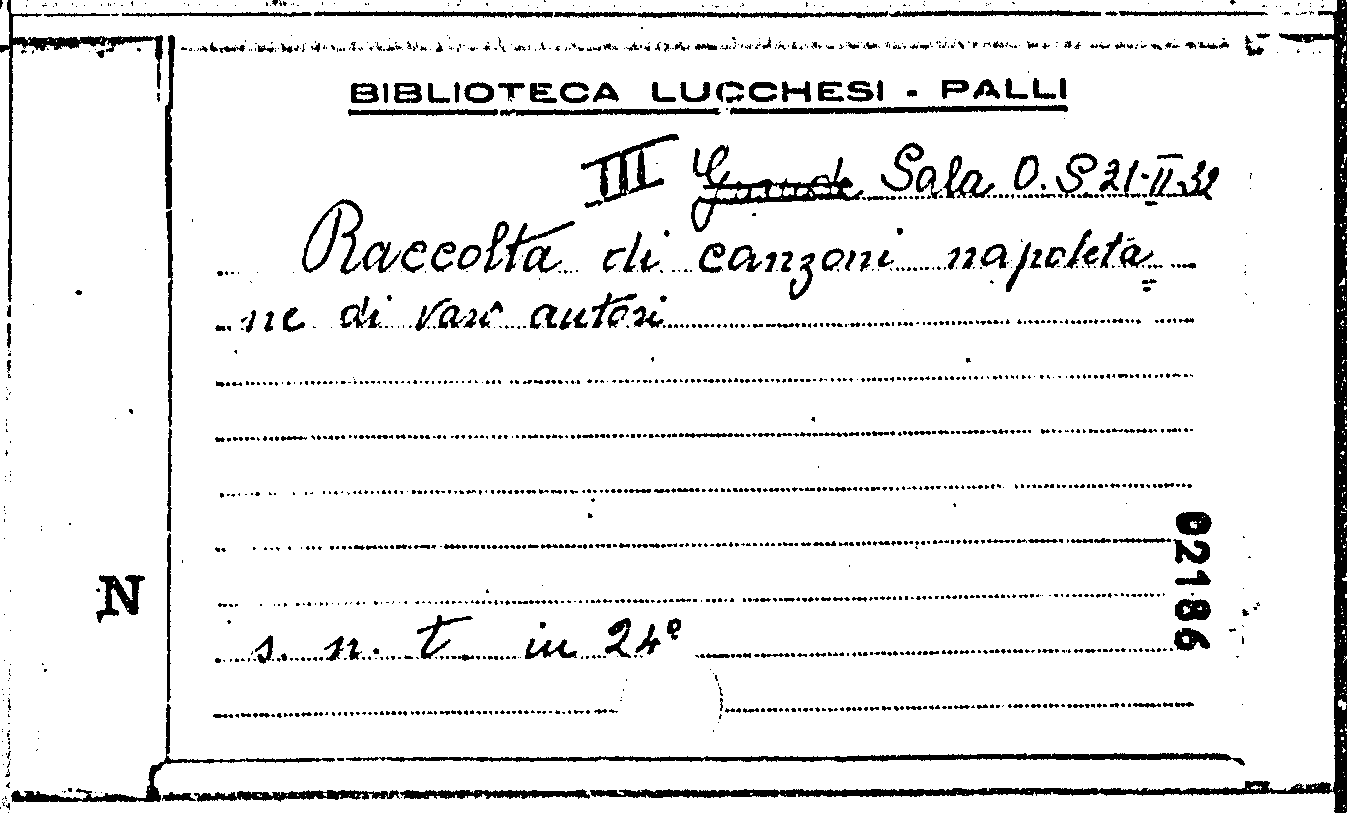 BIBLIOTECA LUCCHESI - PALLI
III Grande Sala O. S. 21-II-32
Raccolta di canzoni napoleta
ne di vari autori
02186
N
s. n. t. in 24º